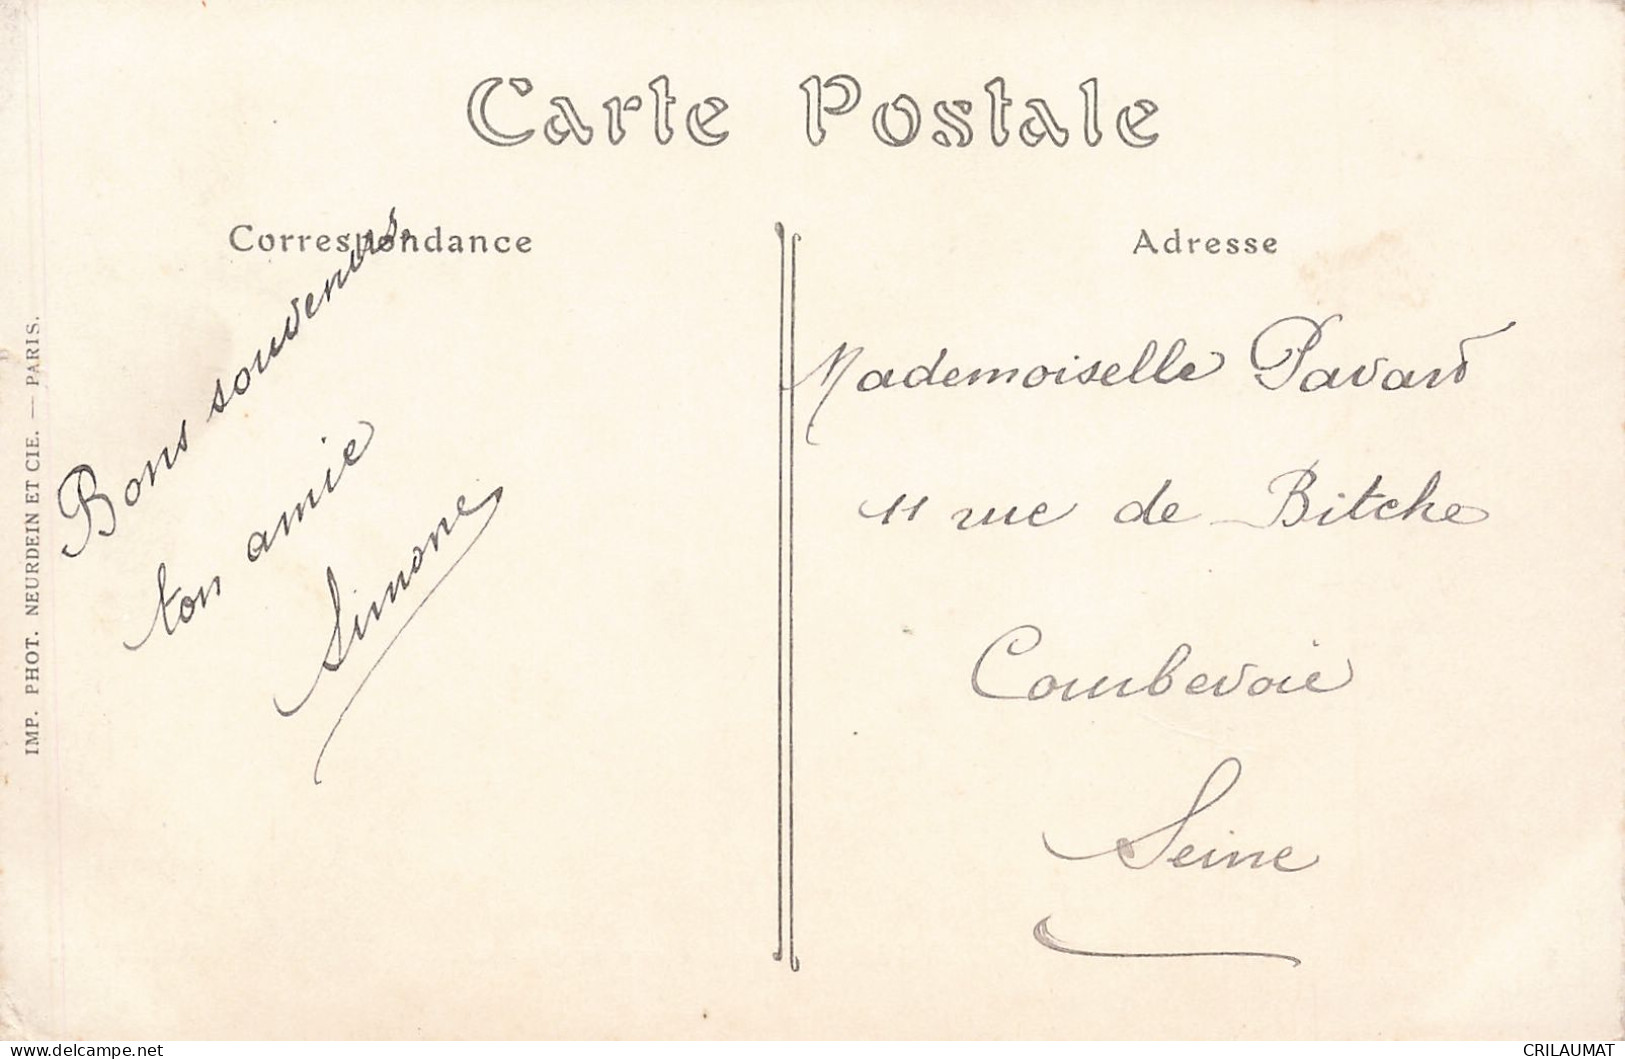 Carte Postale
Correspondance
Adresse
Bons souvenirs
ton amie
Simone
Mademoiselle Pavard
11 rue de Bitche
Courbevoie
Seine
IMP. PHOT. NEURDEIN ET CIE. — PARIS.
delcampe.net
CRILAUMAT